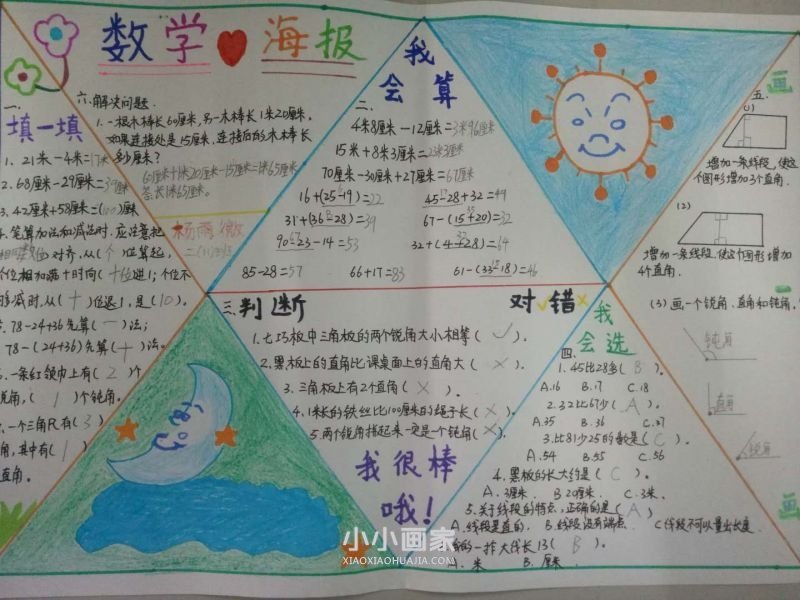 数学 海报
一.
填一填
1. 21米-4米=17米
2. 68厘米-29厘米=39厘米
3. 42厘米+58厘米=(100)厘米
4. 笔算加法和减法时,应注意把
相同数位对齐,从(个)位算起,
个位相加满十时向(十位)进1;个位不
减时,从(十)位退1,是(10)。
78-24+36先算(一)法;
78-(24+36)先算(十)法。
一条红领巾上有(2)个
锐角,(1)个钝角。
一个三角尺有(3)
角,其中有(1)
直角。
六.解决问题.
1. 一根木棒长60厘米,另一木棒长1米20厘米,
如果连接处是15厘米,连接后的木棒长
多少厘米?
60厘米+1米20厘米-15厘米=1米65厘米
答:长1米65厘米.
二(1)班
我
会算
二.
4米8厘米-12厘米=3米96厘米
15米+8米3厘米=23米3厘米
70厘米-30厘米+27厘米=67厘米
16+(25-19)=22 45-28+32=49
31+(36-28)=39 67-(15+20)=32
90-23-14=53 32+(4-28)=64
85-28=57 66+17=83 61-(33-18)=46
三.判断 对✓错×
1.七巧板中三角板的两个锐角大小相等(✓)。
2.黑板上的直角比课桌面上的直角大(×)。
3.三角板上有2个直角(×)。
4.1米长的铁丝比100厘米的绳子长(×)。
5.两个锐角搭起来一定是个钝角(×)。
我很棒
哦!
我
会选
四.
1.45比28多(B)。
A.16 B.17 C.18
2.32比67少(A)。
A.35 B.36 C.37
3.比81少25的数是(C)。
A.54 B.55 C.56
4.黑板的长大约是(C)。
A.3厘米. B 20厘米. C.3米.
5.关于线段的特点,正确的是(A)
A.线段是直的. B.线段没有端点. C.线段不可以量出长度
长13(B)。
A.米 B.厘米
画
五.
(1)
增加一条线段,使这
个图形增加3个直角.
(2)
增加一条线段,使这个图形增加
4个直角.
(3)画一个锐角、直角和钝角.
钝角
直角
锐角
画
小小画家
XIAOXIAOHUAJIA.COM